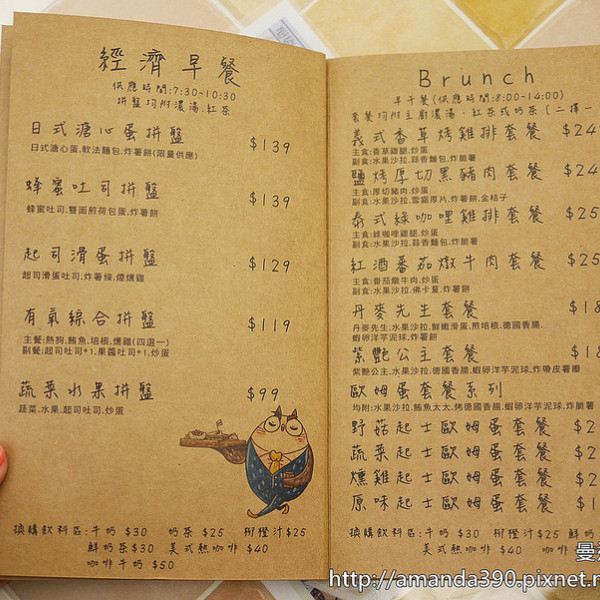 經濟早餐
供應時間:7:30-10:30
拼盤均附濃湯.紅茶
日式溏心蛋拼盤 $139
日式溏心蛋.軟法麵包.炸薯餅(限量供應)
蜂蜜吐司拼盤 $139
蜂蜜吐司.雙面煎荷包蛋.炸薯餅
起司滑蛋拼盤 $129
起司滑蛋吐司.炸薯條.煙燻雞
有氧綜合拼盤 $119
主餐:熱狗.鮪魚.培根.燻雞(四選一)
副餐:起司吐司*1.果醬吐司*1.炒蛋
蔬菜水果拼盤 $99
蔬菜.水果.起司吐司.炒蛋
換購飲料區:牛奶 $30 奶茶 $25 柳橙汁$25
鮮奶茶$30 美式熱咖啡 $40
咖啡牛奶 $50
Brunch
早午餐(供應時間:8:00-14:00)
套餐均附主廚濃湯.紅茶或奶茶(二擇一
義式香草烤雞排套餐 $24
主食:香草雞腿.炒蛋
副食:水果沙拉.蒜香麵包.炸脆薯
鹽烤厚切黑豬肉套餐 $24
主食:厚切豬肉.炒蛋
副食:水果沙拉.雪霜厚片.炸薯餅.金桔子
泰式綠咖哩雞排套餐 $25
主食:綠咖哩雞腿.炒蛋
副食:水果沙拉.蒜香麵包.炸脆薯
紅酒蕃茄燉牛肉套餐 $25
主食:蕃茄燉牛肉.炒蛋
副食:水果沙拉.佛卡夏.炸薯餅
丹麥先生套餐 $18
丹麥先生.水果沙拉.鮮嫩滑蛋.煎培根.德國香腸.
蝦卵洋芋泥球.炸薯餅
紫艷公主套餐 $18
紫艷公主.水果沙拉.德國香腸.蝦卵洋芋泥球.炸帶皮薯瓣
歐姆蛋套餐系列
均附:水果沙拉.鮪魚太太.烤德國香腸.蝦卵洋芋泥球.炸脆薯
野菇起士歐姆蛋套餐 $2
蔬菜起士歐姆蛋套餐 $2
燻雞起士歐姆蛋套餐 $2
原味起士歐姆蛋套餐 $1
換購飲料區:牛奶 $30 柳橙汁$25 鮮奶
美式熱咖啡 $40 咖啡
http://amanda390.pixnet.n